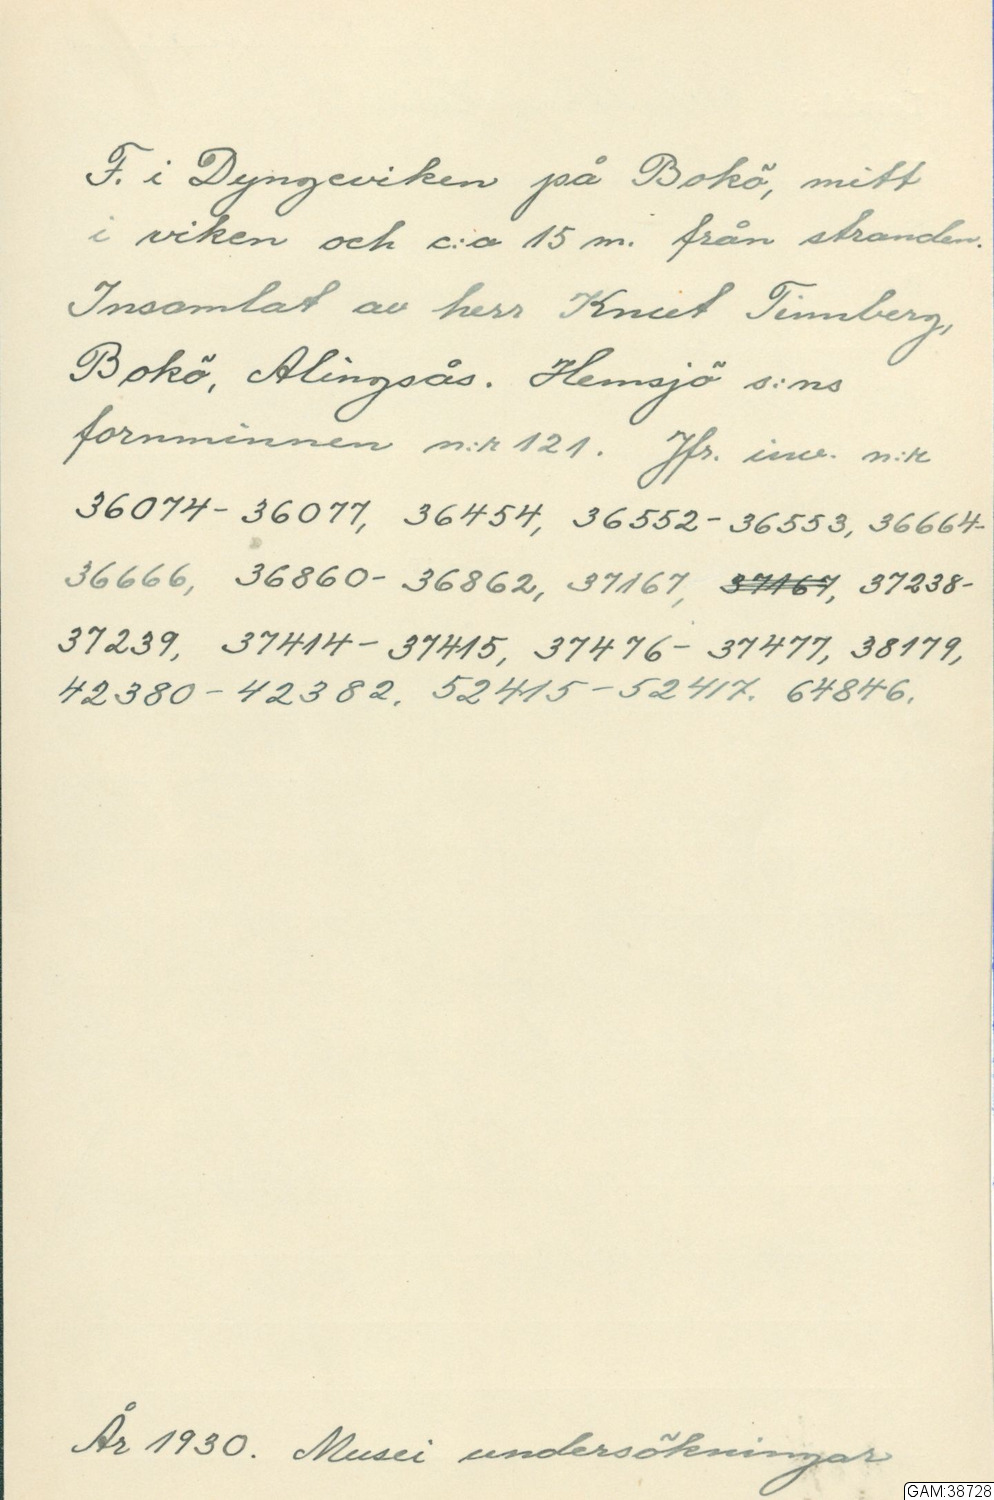 F. i Dyngeviken på Bokö, mitt
i viken och c:a 15 m. från stranden.
Insamlat av herr Knut Tinnberg,
Bokö, Alingsås. Hemsjö s:ns
fornminnen n:r 121. Jfr. inv. n:r
36074- 36077, 36454, 36552-36553, 36664-
36666, 36860- 36862, 37167, 37167, 37238-
37239, 37414- 37415, 37476- 37477, 38179,
42380-42382. 52415-52417. 64846.
År 1930. Musei undersökningar
GAM:38728